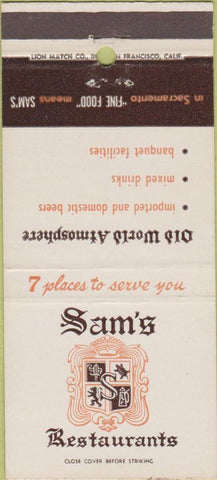 LION MATCH CO., IN SAN FRANCISCO, CALIF.
in Sacramento "FINE FOOD" means SAM'S
Old World Atmosphere
• imported and domestic beers
• mixed drinks
• banquet facilities
7 places to serve you
Sam's
S
Restaurants
CLOSE COVER BEFORE STRIKING